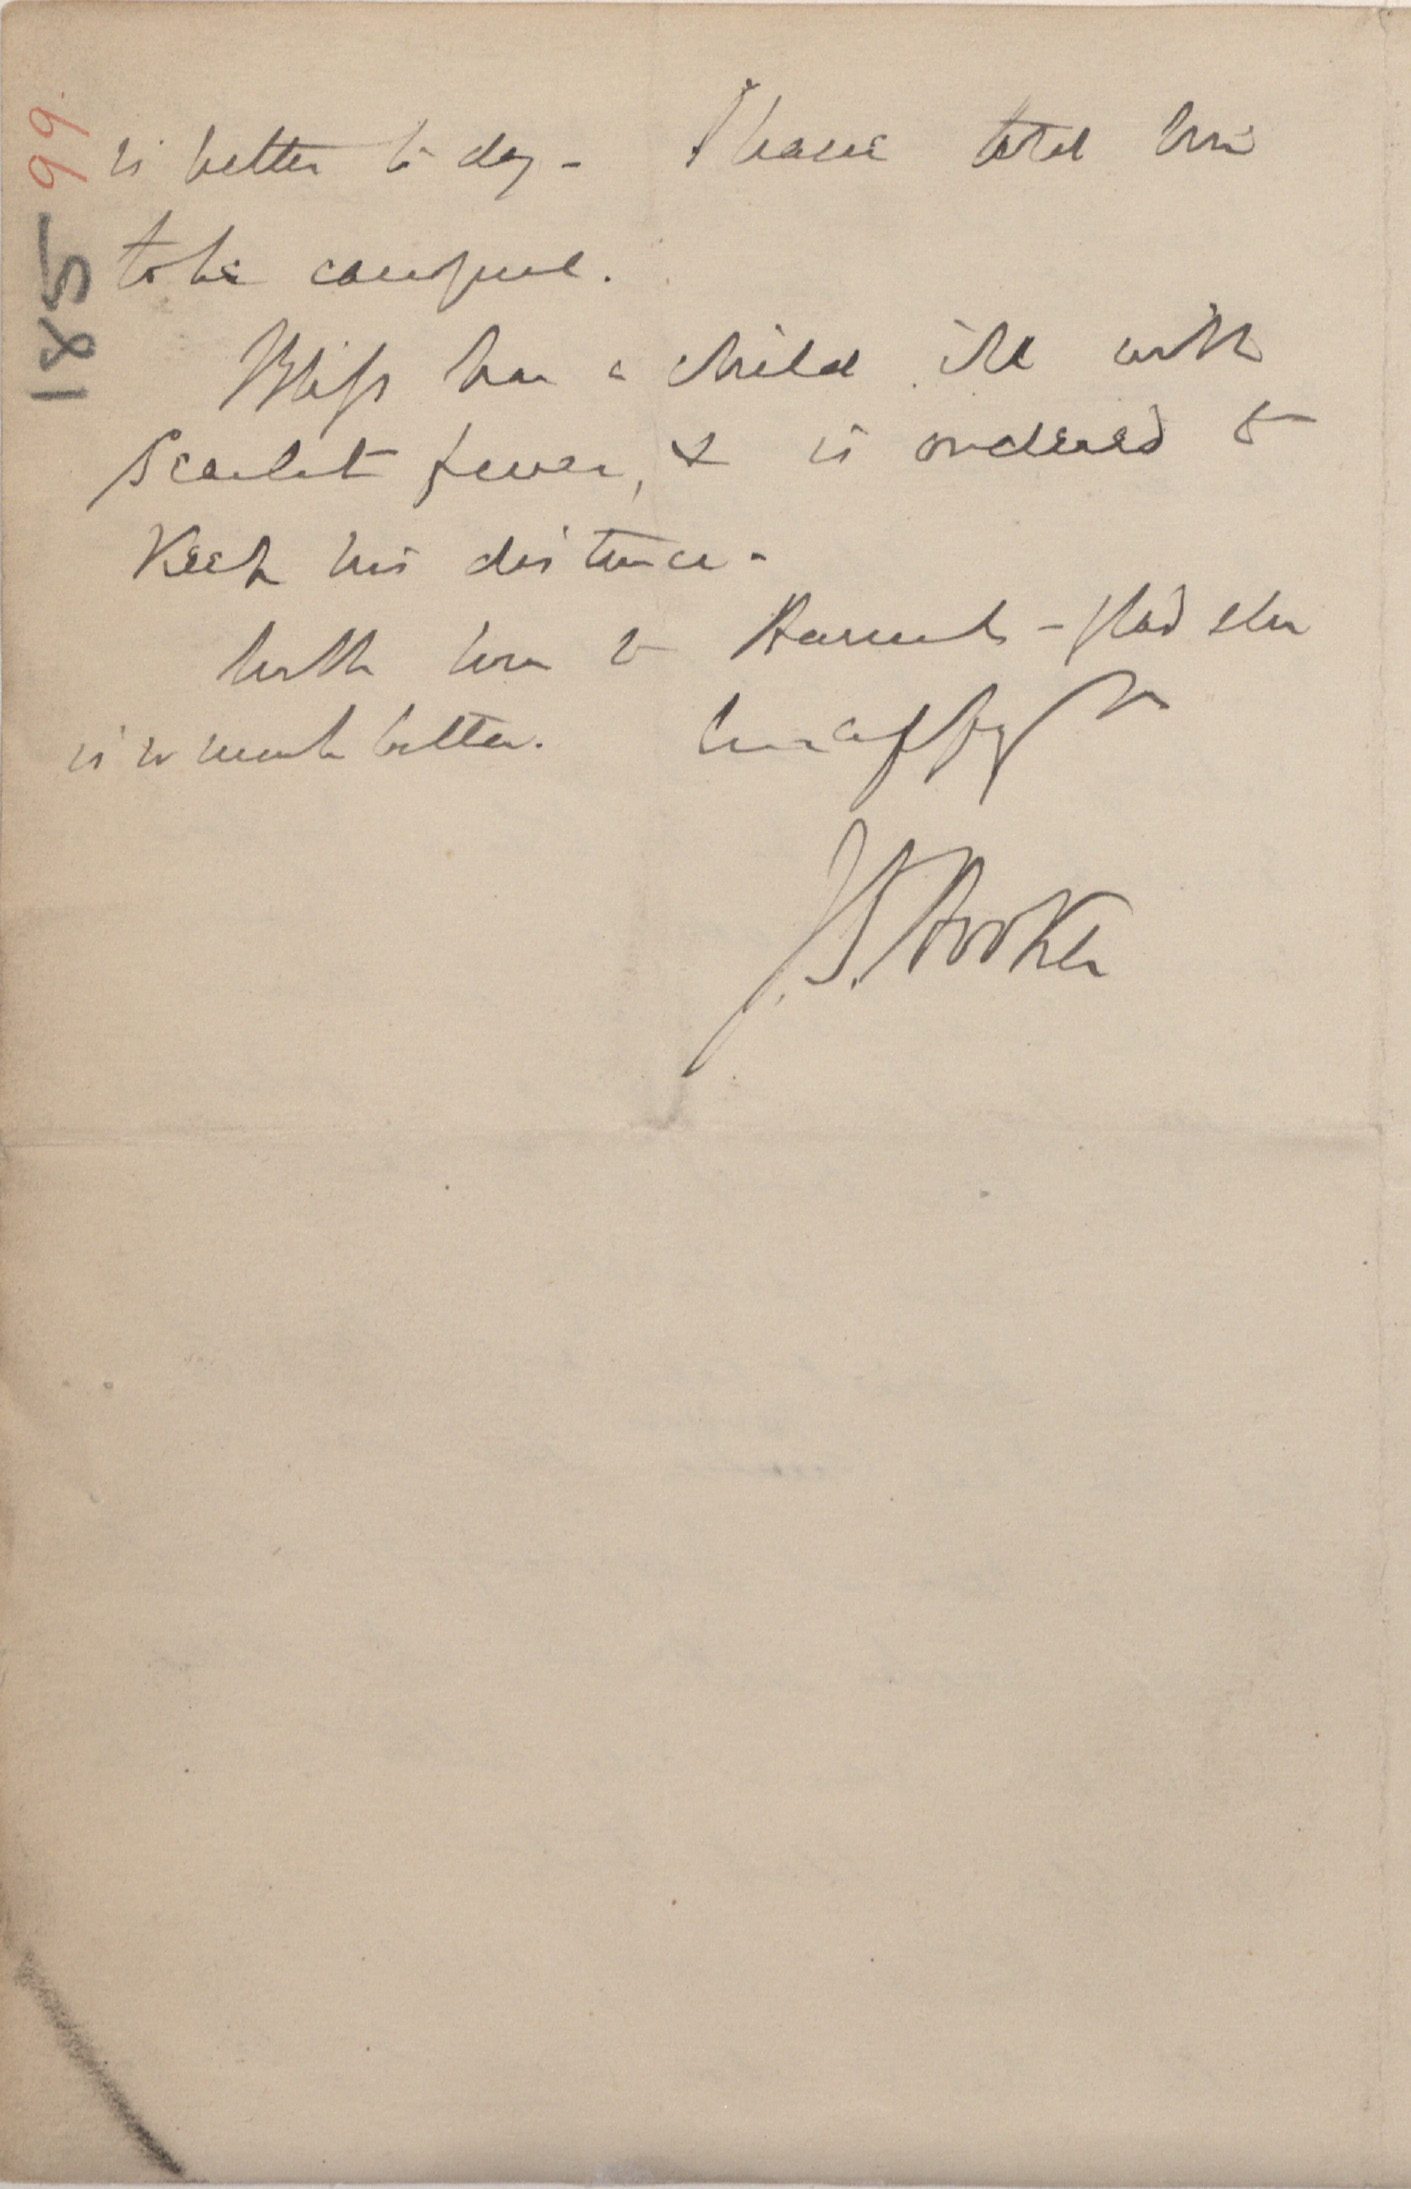 99.
185
is better to day - I have told him
to be careful.
Bliss has a child ill with
Scarlet fever, & is ordered to
Keep his distance -
With love to Harriet - glad she
is so much better. Ever aff
J.D. Hooker